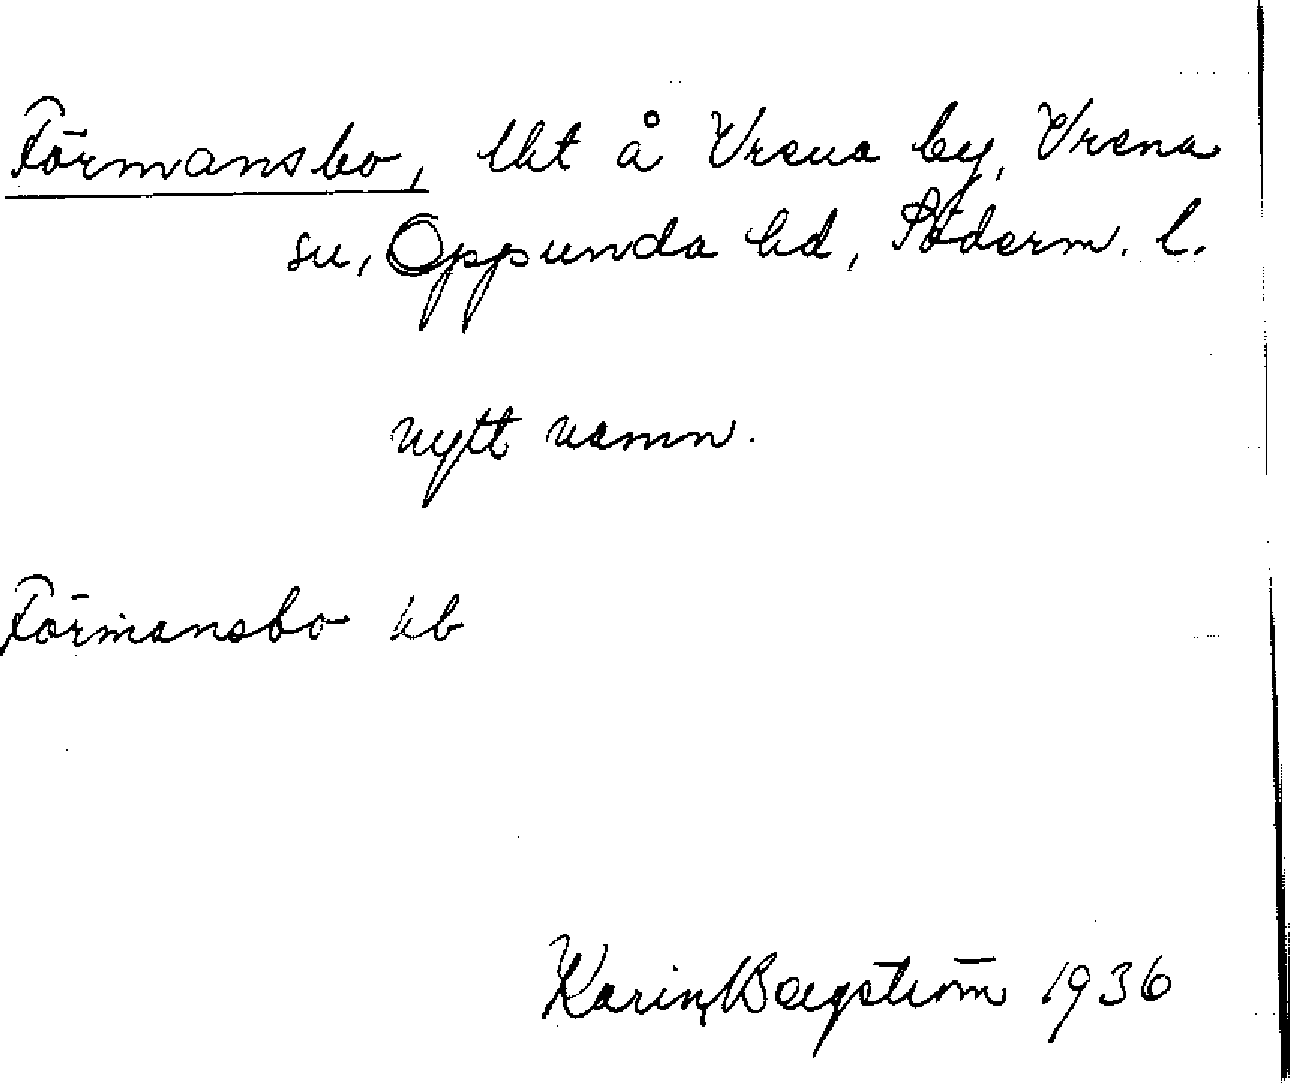 Förmansbo, lht å Vrena by, Vrena
sn, Oppunda hd, Söderm. l.
nytt namn.
Förmansbo kb
Karin Bergström 1936